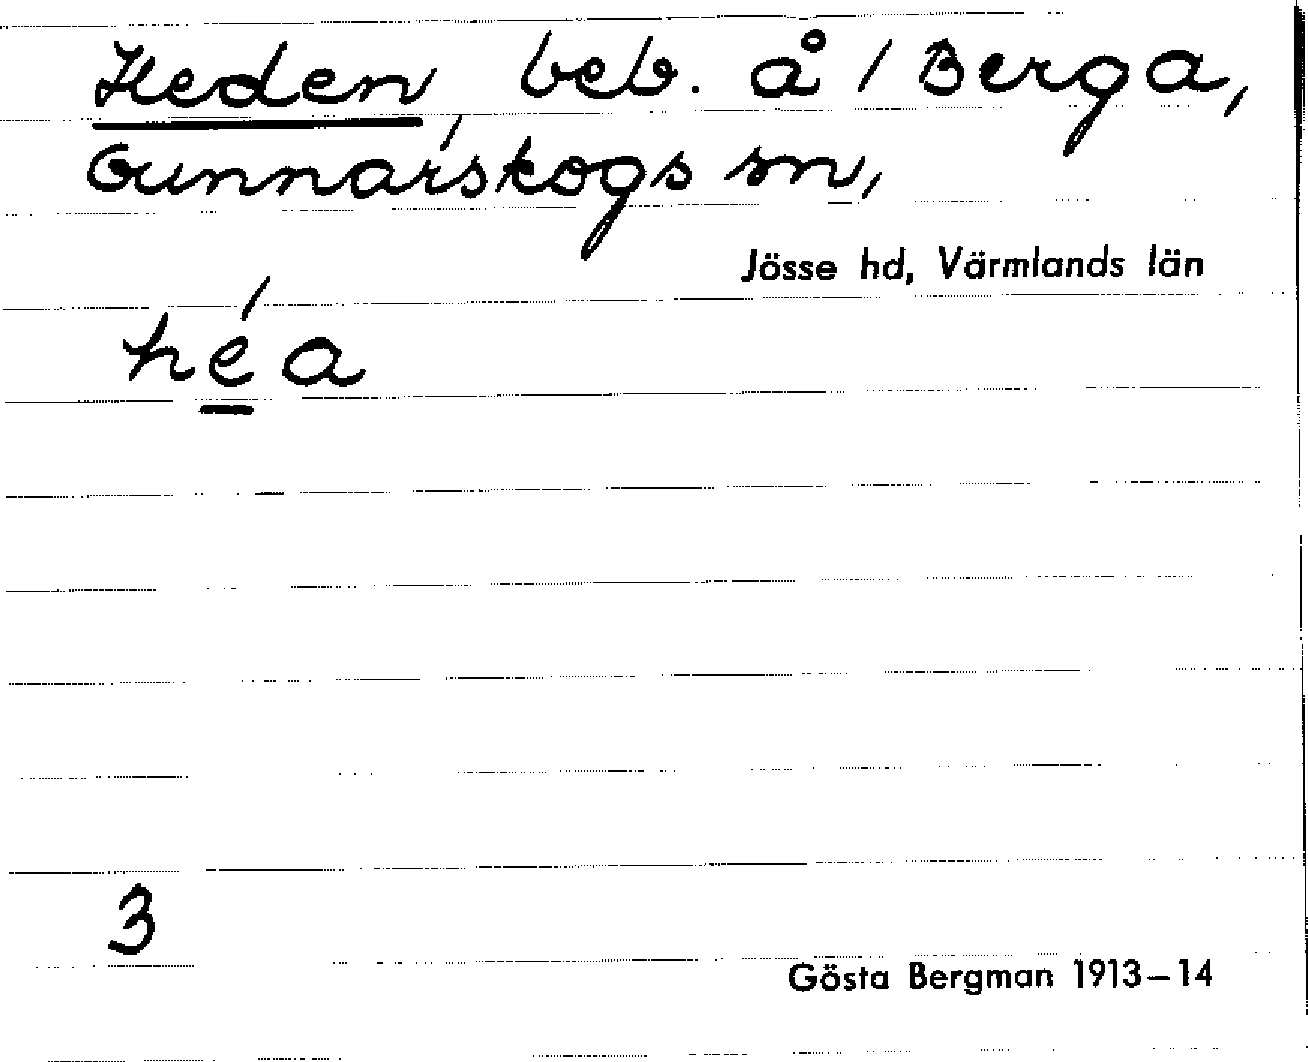 Heden, beb. å 1 Berga,
Gunnarskogs sn,
Jösse hd, Värmlands län
héa
3
Gösta Bergman 1913–14